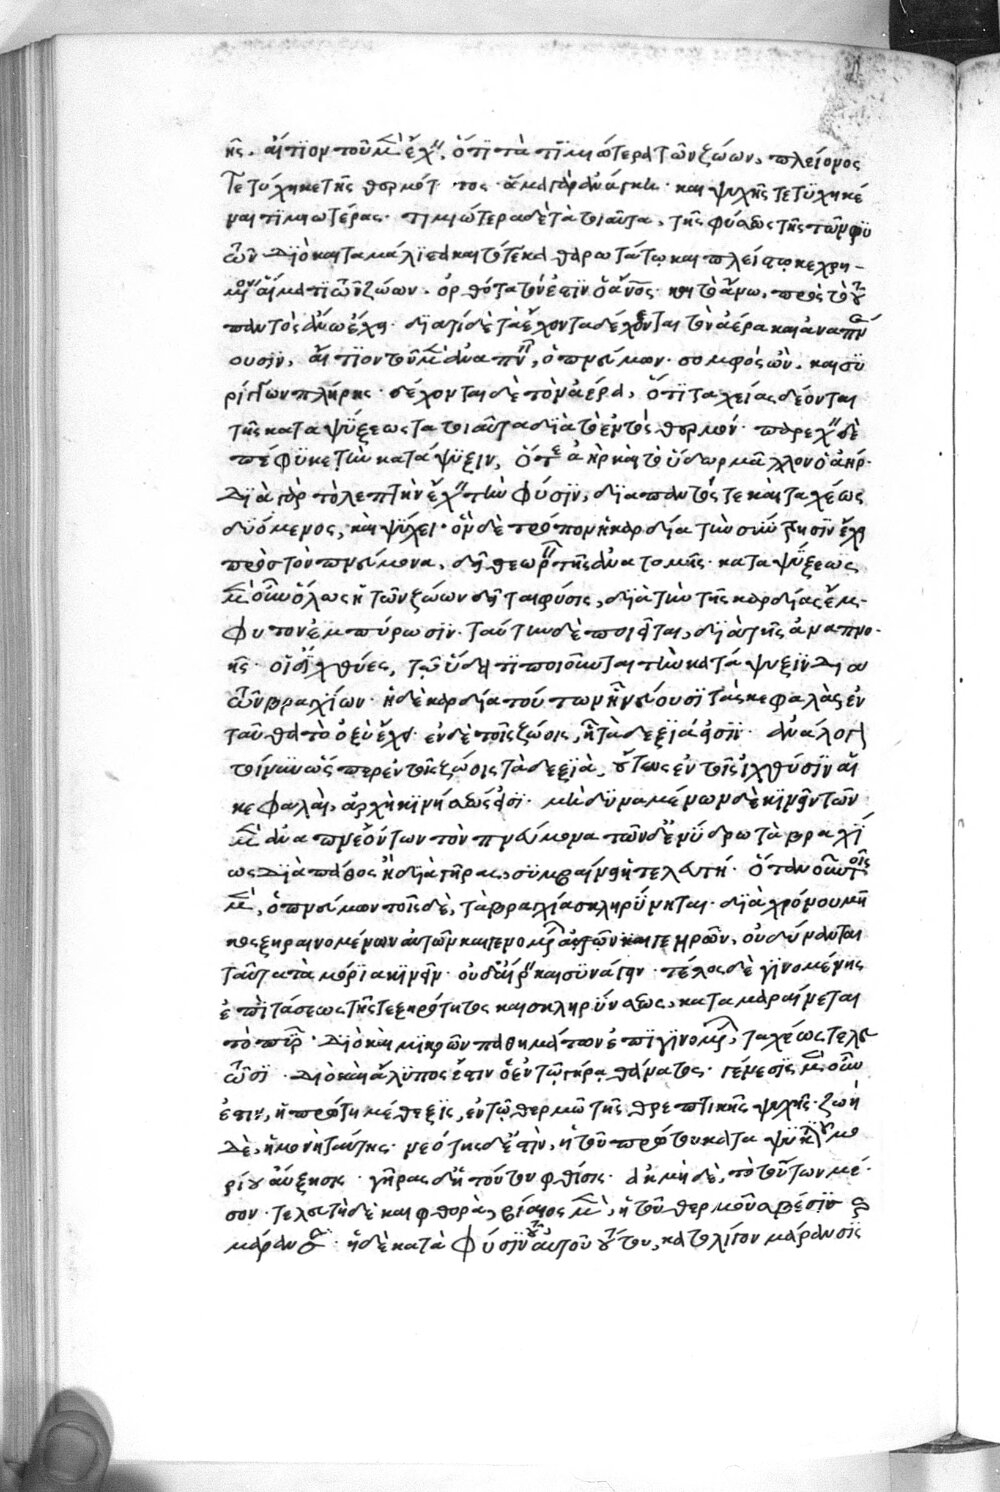 ῆς. αἴτϊον τοῦ μὲν ἔχειν, ὅτϊ τὰ τϊμιώτερα τῶν ζώων, πλείονος
τετύχηκε τῆς θερμότητος· ἅμα γὰρ ἀνάγκη· καὶ ψυχῆς τετϋχηκέ
ναι τϊμιωτέρας· τϊμιώτερα δὲ τὰ τοιαῦτα, τῆς φύσεως τῆς τῶν φυ
τῶν· Διὸ καὶ τὰ μάλϊστα καὶ
μένον αἵματϊ τῶν ζώων. ὀρθότατόν ἐστϊν ὁ ἄνος· καὶ τὸ ἄνω, πρὸς τὸ τοῦ
παντὸς ἄνω ἔχει· δϊατί δὲ τὰ ἔχοντα δέχονται τὸν ἀέρα καὶ ἀναπνέ
ουσϊν, αἴτϊον τοῦ μὲν ἀναπνεῖν, ὁ πνεύμων· σομφὸς ὢν. καὶ συ
ρίγγων πλήρης· δέχονται δὲ τὸν ἀέρα, ὅτϊ ταχείας δέονται
τῆς καταψύξεως τὰ τοιαῦτα δϊὰ τὸ ἐντὸς θερμόν· παρέχειν δὲ
πέφϋκε τὴν κατάψϋξιν, ὅ τε ἀὴρ καὶ τὸ ὕδωρ μᾶλλον ὁ ἀήρ·
Δϊὰ γὰρ τὸ λεπτὴν ἔχειν τὴν φύσϊν, δϊὰ παντός τε καὶ ταχέως
δϋόμενος, καὶ ψϋχει· ὃν δὲ τρόπον ἡ καρδία τὴν σύντρησϊν ἔχει
πρὸς τὸν πνεύμονα, δεῖ θεωρεῖν ἐκ τῆς ἀνατομῆς· καταψύξεως
μὲν οὖν ὅλως ἡ τῶν ζώων δεῖται φύσις, δϊὰ τὴν τῆς καρδίας ἔμ-
φυτον ἐμπύρωσϊν· ταύτην δὲ ποιεῖται, δϊὰ τῆς ἀναπνο-
ῆς· οἱ δὲ ἰχθύες, τῷ ὕδατϊ ποιοῦνται τὴν κατάψυξϊν Διὰ
τῶν βραγχίων· ἡ δὲ καρδία τούτων ᾗ νεύουσϊ τὰς κεφαλὰς ἐν
ταῦθα τὸ ὀξὺ ἔχει· ἐν δὲ τοῖς ζώοις, ᾗ τὰ δεξϊά εἰσϊν· ἀνάλογον
τοίνϋν ὥσπερ ἐν τοῖς ζώοις τὰ δεξϊά, οὕτως ἐν τοῖς ἰχθύσϊν αἱ
κεφαλαὶ, ἀρχὴ κϊνήσεώς εἰσϊ· μὴ δϋναμένων δὲ κϊνεῖν τῶν
μὲν ἀναπνεόντων τὸν πνεύμονα τῶν δὲ ἐνύδρων τὰ βράγχϊ
ως Διὰ πάθος ἢ δϊὰ γῆρας, συμβαίνει ἡ τελευτή· ὅταν οὖν τοῖς
μὲν, ὁ πνεύμων τοῖς δὲ, τὰ βράγχϊα σκληρύνηται· δϊὰ χρόνου μῆ
κος ξηραινομένων αὐτῶν καὶ γινομένων αὐτῶν καὶ γεηρῶν, οὐ δύνανται
ταῦτα τὰ μόρϊα κϊνεῖν· οὐδὲ αἴρειν καὶ συνάγειν· τέλος δὲ γϊνομένης
ἐπϊτάσεως τῆς τε ξηρότητος καὶ σκληρύνσεως, καταμαραίνεται
τὸ πῦρ· Διὸ καὶ μϊκρῶν παθημάτων ἐπϊγϊνομένων, ταχέως τελευ
τῶσϊ· Διὸ καὶ ἄλϋπος ἐστιν ὁ ἐν τῷ γήρᾳ θάνατος· γένεσϊς μὲν οὖν
ἐστιν, ἡ πρώτη μέθεξϊς, ἐν τῷ θερμῷ τῆς θρεπτϊκῆς ψυχῆς· ζωὴ
Δὲ, ἡ μονὴ ταύτης· νεότης δέ ἐστϊν, ἡ τοῦ πρώτου καταψυκτϊκοῦ μο
ρίου αὔξησις· γῆρας δὲ ἡ τούτου φθίσϊς· ἀκμὴ δὲ, τὸ τούτων μέ-
σον· τελευτὴ δὲ καὶ φθορὰ, βίαιος μὲν, ἡ τοῦ θερμοῦ σβέσϊς καὶ
μάρανσις· ἡ δὲ κατὰ φύσϊν τοῦ αὐτοῦ τούτου, κατ ὀλίγον μάρανσϊς